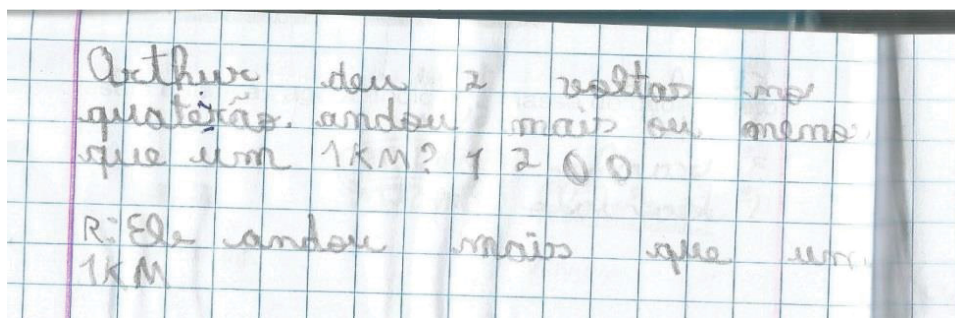 Arthur deu 2 voltas no
quaterão. andou mais ou menos
que um 1KM? 1200
R: Ele andou mais que um
1KM